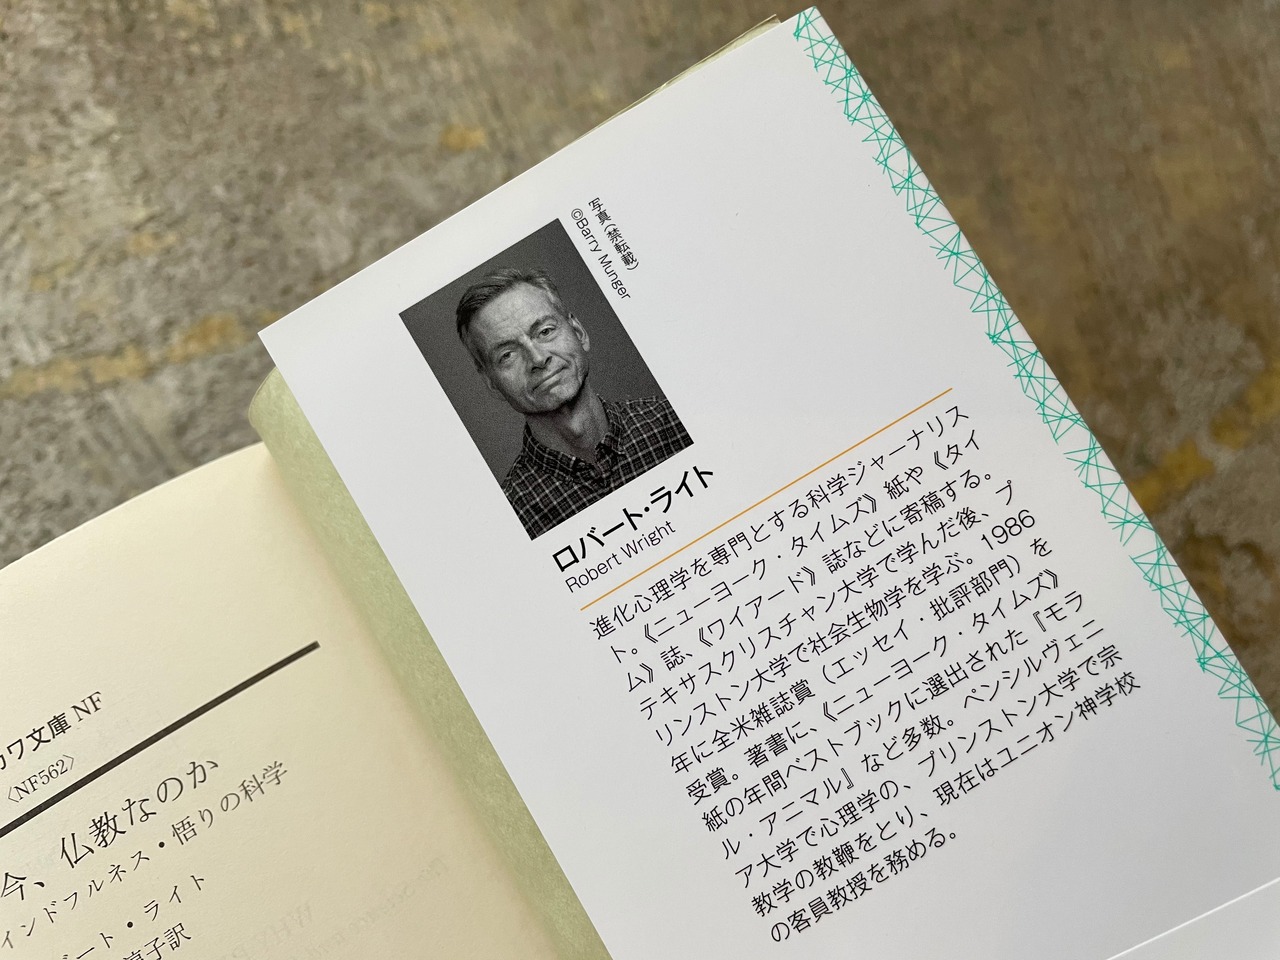 写真(禁転載)
©Barry Munger
ロバート・ライト
Robert Wright
進化心理学を専門とする科学ジャーナリス
ト。《ニューヨーク・タイムズ》紙や《タイ
ム》誌、《ワイアード》誌などに寄稿する。
テキサスクリスチャン大学で学んだ後、プ
リンストン大学で社会生物学を学ぶ。1986
年に全米雑誌賞（エッセイ・批評部門）を
受賞。著書に、《ニューヨーク・タイムズ》
紙の年間ベストブックに選出された『モラ
ル・アニマル』など多数。ペンシルヴェニ
ア大学で心理学の、プリンストン大学で宗
教学の教鞭をとり、現在はユニオン神学校
の客員教授を務める。
カワ文庫 NF
〈NF562〉
今、仏教なのか
インドフルネス・悟りの科学
バート・ライト
子訳